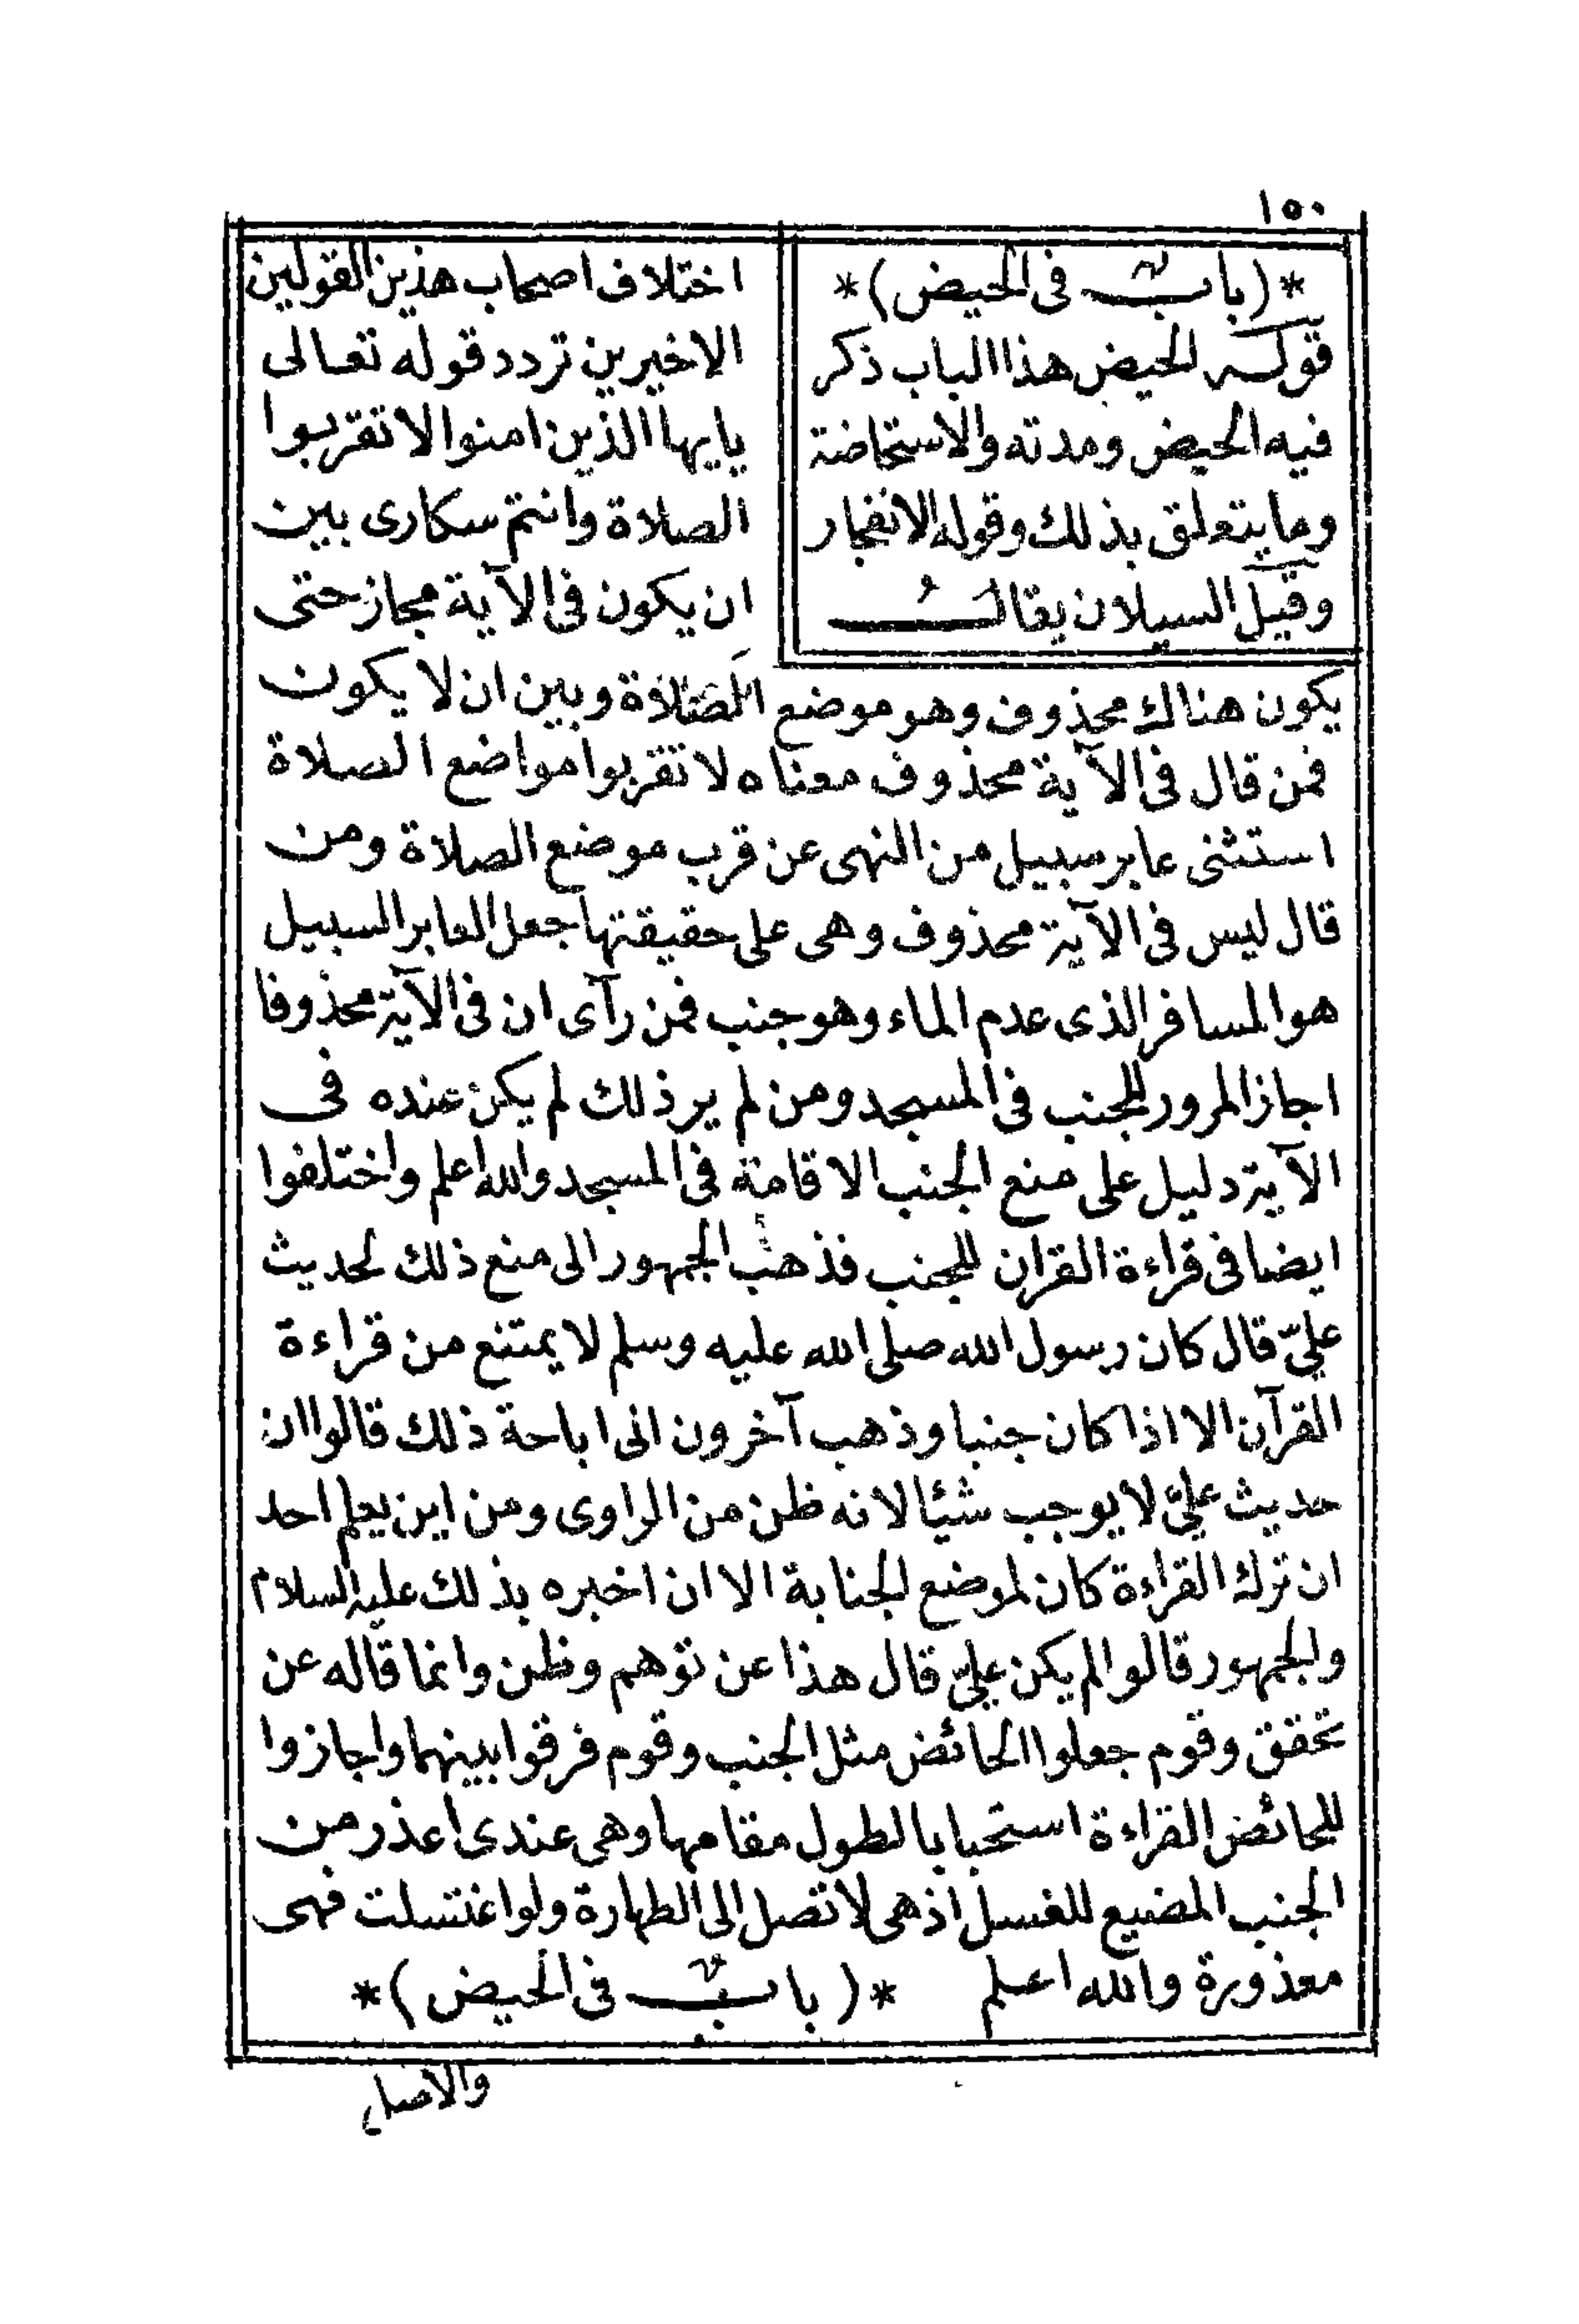 ١٥٠
*(باب في الحيض)*
قوله الحيض هذا الباب ذكر
فيه الحيض ومدته والاستحاضة
وما يتعلق بذلك وقوله الانفجار
وقيل السيلان يقال
اختلاف اصحاب هذين القولين
الاخيرين تردد قوله تعالى
يايها الذين امنوا لا تقربوا
الصلاة وانتم سكارى بين
ان يكون فى الآية مجاز حتى
يكون هناك محذوف وهو موضع الصلاة وبين ان لا يكون
فمن قال فى الآية محذوف معناه لا تقربوا مواضع الصلاة
استثنى عابر سبيل من النهى عن قرب موضع الصلاة ومن
قال ليس فى الآية محذوف وهى على حقيقتها جعل العابر السبيل
هو المسافر الذى عدم الماء وهو جنب فمن رآى ان فى الآية محذوفا
اجاز المرور للجنب فى المسجد ومن لم ير ذلك لم يكن عنده فى
الآية دليل على منع الجنب الاقامة فى المسجد والله اعلم واختلفوا
ايضا فى قراءة القران للجنب فذهب الجمهور الى منع ذلك لحديث
علىّ قال كان رسول الله صلى الله عليه وسلم لا يمتنع من قراءة
القرآن الا اذا كان جنبا وذهب آخرون الى اباحة ذلك قالوا ان
حديث علىّ لا يوجب شيئا لانه ظن من الراوى ومن اين يعلم احد
ان ترك القراءة كان لموضع الجنابة الا ان اخبره بذلك عليه السلام
والجمهور قالوا لم يكن علىّ قال هذا عن توهم وظن وانما قاله عن
تحقق وقوم جعلوا الحائض مثل الجنب وقوم فرقوا بينهما واجازوا
للحائض القراءة استحبابا لطول مقامها وهى عندى اعذر من
الجنب المضيع للغسل اذ هى لا تصل الى الطهارة ولو اغتسلت فهى
معذورة والله اعلم *(باب فى الحيض)*
والاصل